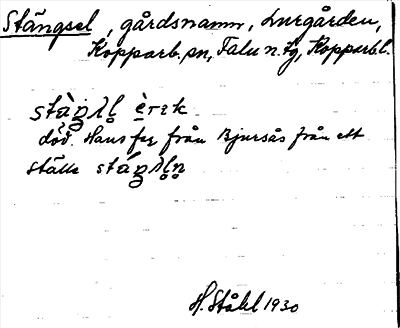 Stängsel, gårdsnamn, Lurgården,
Kopparb. sn, Falu n. tg, Kopparb. l.
död. Hans far från Bjursås från ett
ställe
H. Ståhl 1930